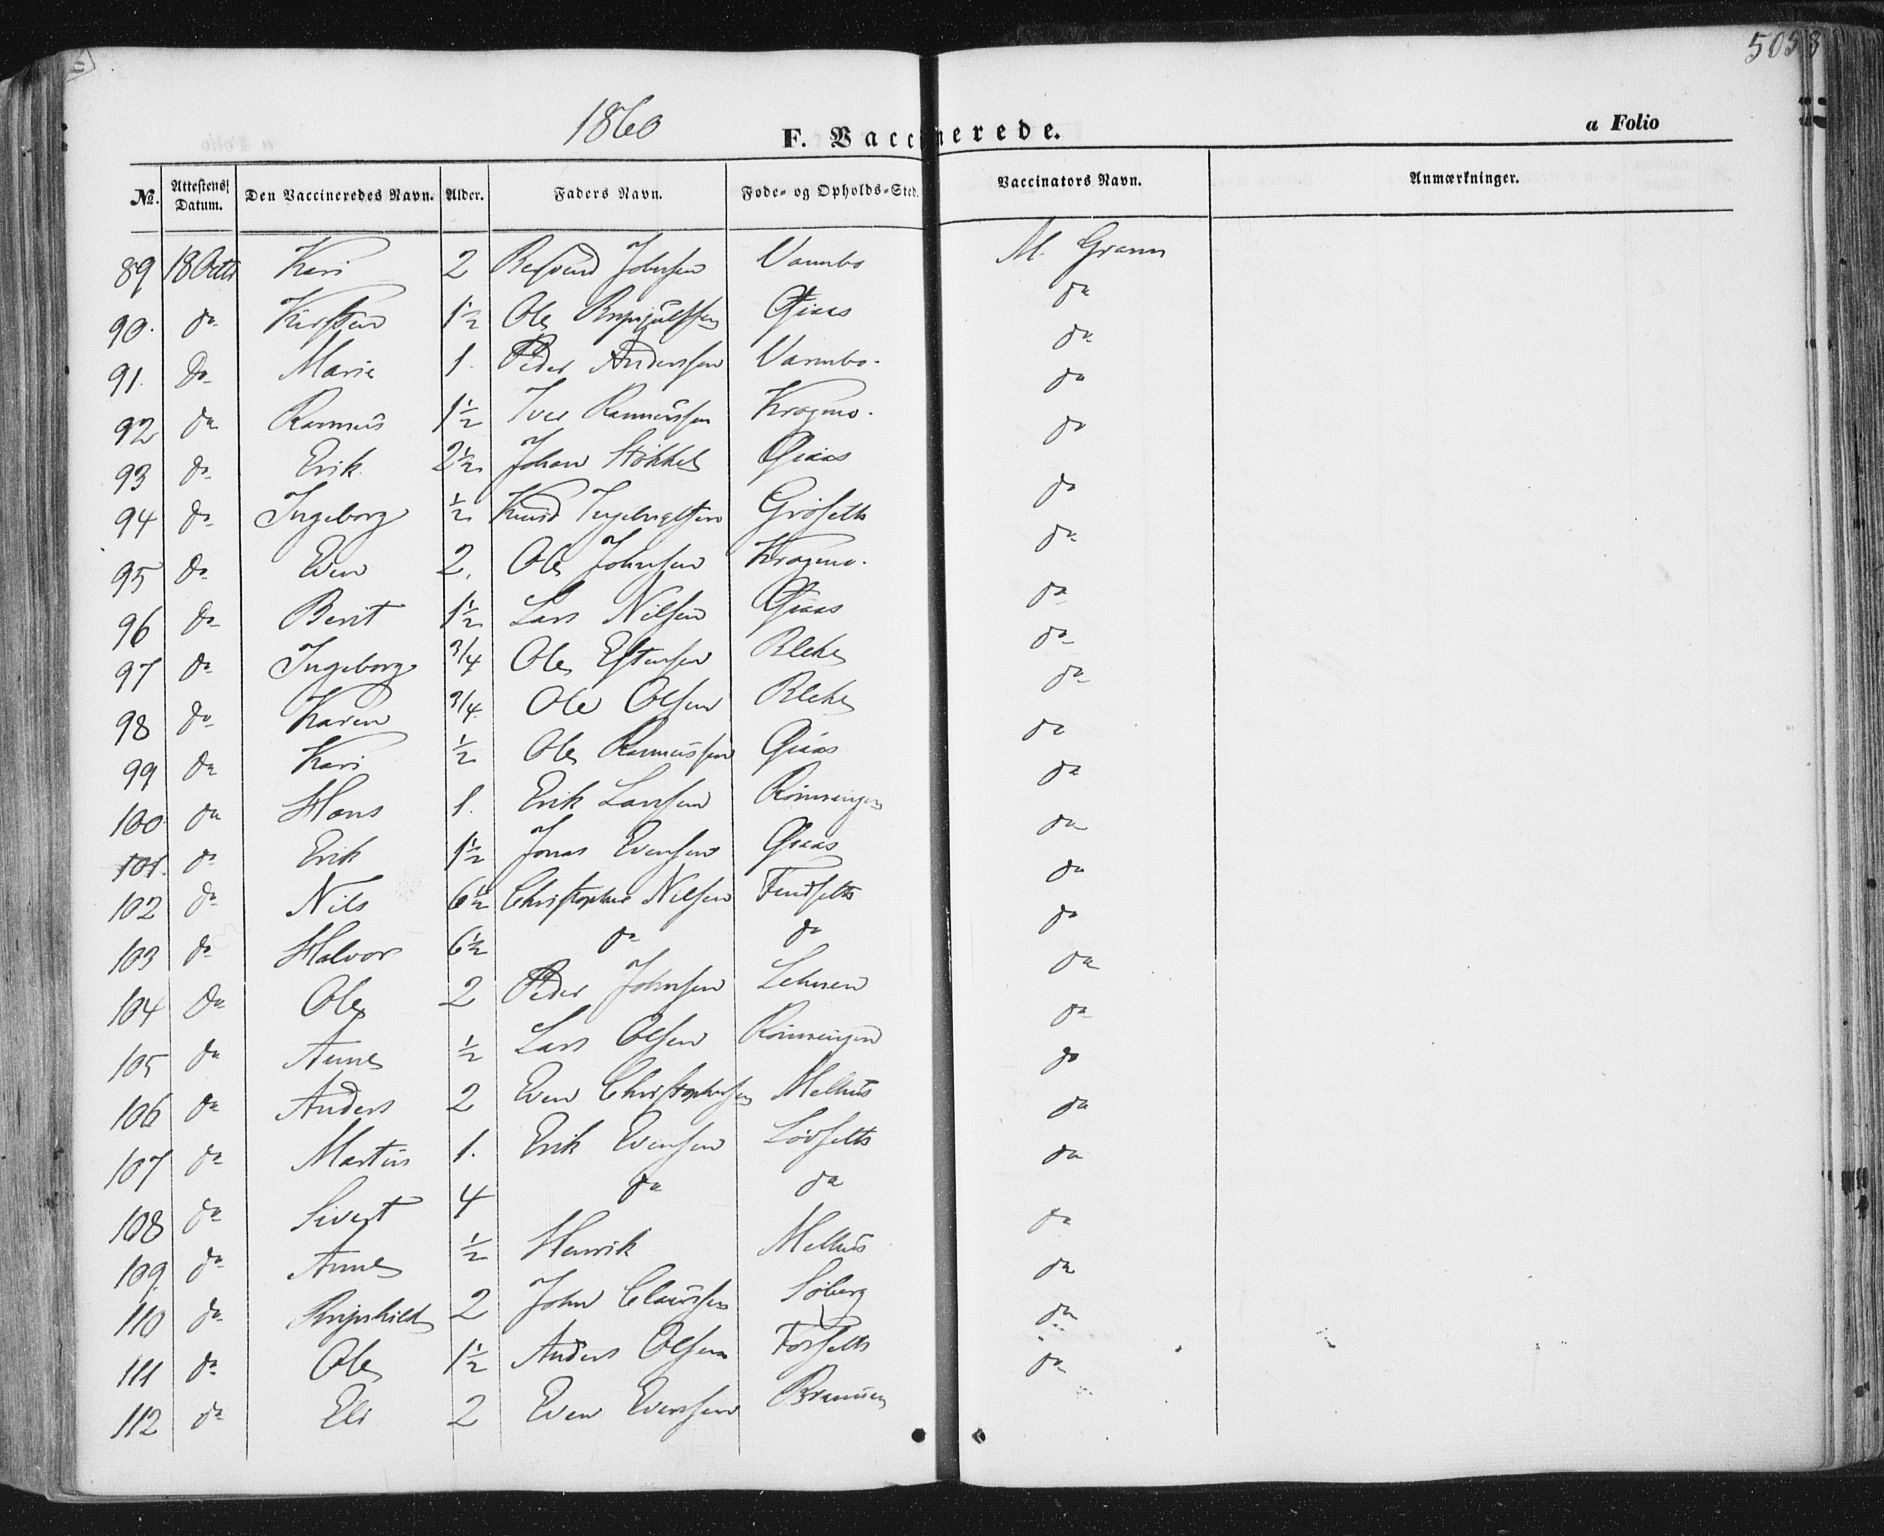 5058
1860
F. Vaccinerede.
a Folio
No. Attestens Datum. Den Vaccineredes Navn. Alder. Faders Navn. Føde- og Opholds-Sted. Vaccinators Navn. Anmærkninger.
89 18 Octbr Kari 2 Johnsen Varmbo M. Gram
90. do Kirsten 1½ Ole Gaas do
91. Do Marie 1. Peder Anderssen Varmbo. do
92 do Rasmus 1½ Iver Rasmussen Kragmo. do
93 do Erik 2½ Johan Stökkel Gaas do
94 do Ingeborg ½ Knud Ingebrigtsen Gröseth do
95 do Even 2. Ole Johnsen Kragmo. do
96 Do Berit 1½ Lars Nilsen Gaas do
97 do Ingeborg 3/4 Ole Estensen Blekes do
98 do Karen 3/4 Ole Olsen Blekes do
99 do Kari ½ Ole Rasmussen Gaas do
100 do Hans 1. Erik Larssen Rönningen do
101. do Erik 1½ Jonas Evensen Gaas do
102 do Nils 6½ Christopher Nilsen Findseth do
103 do Halvor 6½ do do do
104 do Ole 2 Peder Johnsen Lehnen do
105 do Anne ½ Lars Olsen Rönningen do
106 do Anders 2 Even Christophersen Melhus do
107 do Martin 1. Erik Evensen Lövseth do
108 do Sivert 4 do do do
109 do Anne ½ Henrik Melhus do
110 do 2 John Claussen Söberg do
111 do Ole 1½ Anders Olsen Forseth do
112 do Eli 2 Even Evensen do